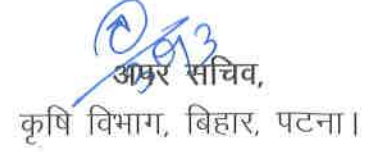 अपर सचिव,
कृषि विभाग, बिहार, पटना।